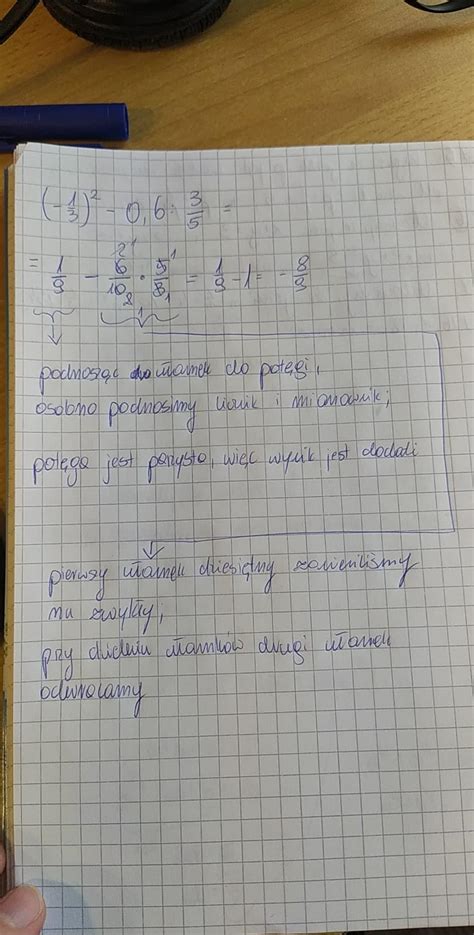 (-1/3)² - 0,6 : 3/5 =
= 1/9 - 6/10 · 5/3 = 1/9 - 1 = - 8/9
podnosząc ułamek do potęgi,
osobno podnosimy licznik i mianownik;
potęga jest parzysta, więc wynik jest dodati
pierwszy ułamek dziesiętny zamieniliśmy
na zwykły;
przy dzieleniu ułamków drugi ułamek
odwracamy